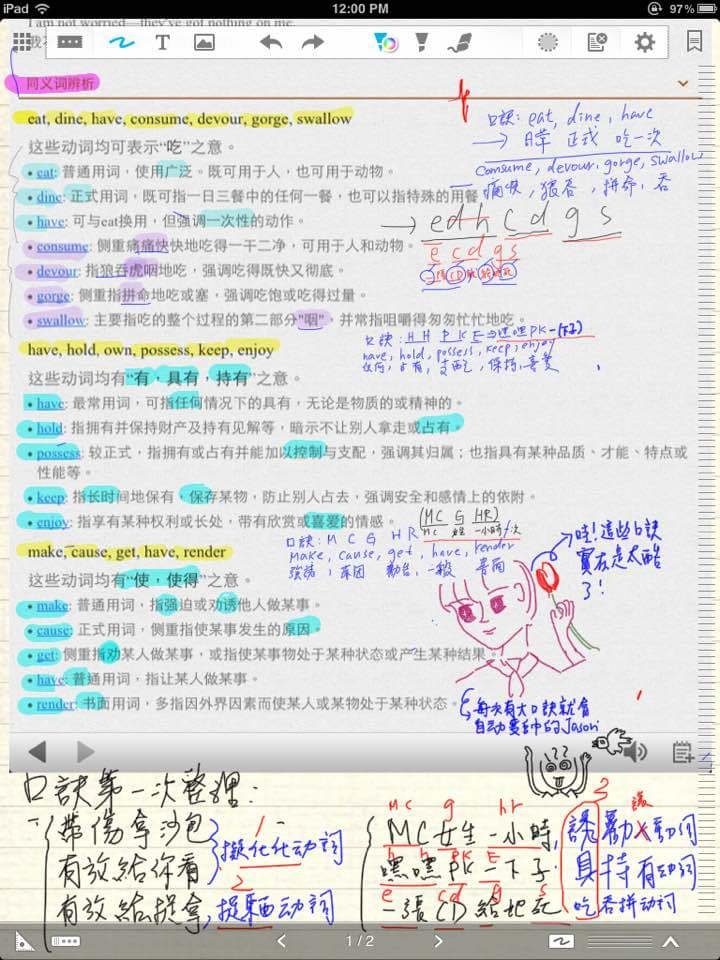 iPad
12:00 PM
97%
I am not worried—they've got nothing on me.
T
同义词辨析
eat, dine, have, consume, devour, gorge, swallow
这些动词均可表示“吃”之意。
• eat: 普通用词，使用广泛。既可用于人，也可用于动物。
• dine: 正式用词，既可指一日三餐中的任何一餐，也可以指特殊的用餐
• have: 可与eat换用，但强调一次性的动作。
• consume: 侧重痛痛快快地吃得一干二净，可用于人和动物。
• devour: 指狼吞虎咽地吃，强调吃得既快又彻底。
• gorge: 侧重指拼命地吃或塞，强调吃饱或吃得过量。
• swallow: 主要指吃的整个过程的第二部分"咽"，并常指咀嚼得匆匆忙忙地吃。
口訣: eat, dine, have
→ 日常 正式 吃一次
consume, devour, gorge, swallow
痛快, 狼吞, 拼命, 吞
→ edh cd gs
e cd gs
have, hold, own, possess, keep, enjoy
这些动词均有“有，具有，持有”之意。
• have: 最常用词，可指任何情况下的具有，无论是物质的或精神的。
• hold: 指拥有并保持财产及持有见解等，暗示不让别人拿走或占有。
• possess: 较正式，指拥有或占有并能加以控制与支配，强调其归属；也指具有某种品质、才能、特点或
性能等。
• keep: 指长时间地保有，保存某物，防止别人占去，强调安全和感情上的依附。
• enjoy: 指享有某种权利或长处，带有欣赏或喜爱的情感。
口訣: H H P K E ⇒ 嘿嘿PK一下子
have, hold, possess, keep, enjoy
任何, 占有, 支配, 保持, 喜愛
make, cause, get, have, render
这些动词均有“使，使得”之意。
• make: 普通用词，指强迫或劝诱他人做某事。
• cause: 正式用词，侧重指使某事发生的原因。
• get: 侧重指劝某人做某事，或指使某事物处于某种状态或产生某种结果。
• have: 普通用词，指让某人做某事。
• render: 书面用词，多指因外界因素而使某人或某物处于某种状态。
(MC G HR)
口訣: M C G HR
make, cause, get, have, render
原因 勸告, 一般 書面
哇!這些口訣
實在是太酷
了!
每次有大口訣就會
自動賽中的Jason
??
口訣第一次整理:
帶傷拿沙包
有放給你看
1
擬化化动词
有放給捉拿,
2
捉驅动词
mc g hr
MC女生一小時,
h h PK E
嘿嘿PK一下子
e cd g s
一張CD給她死
3
誘勸動词
具持有动词
吃吞拼动词
1 / 2